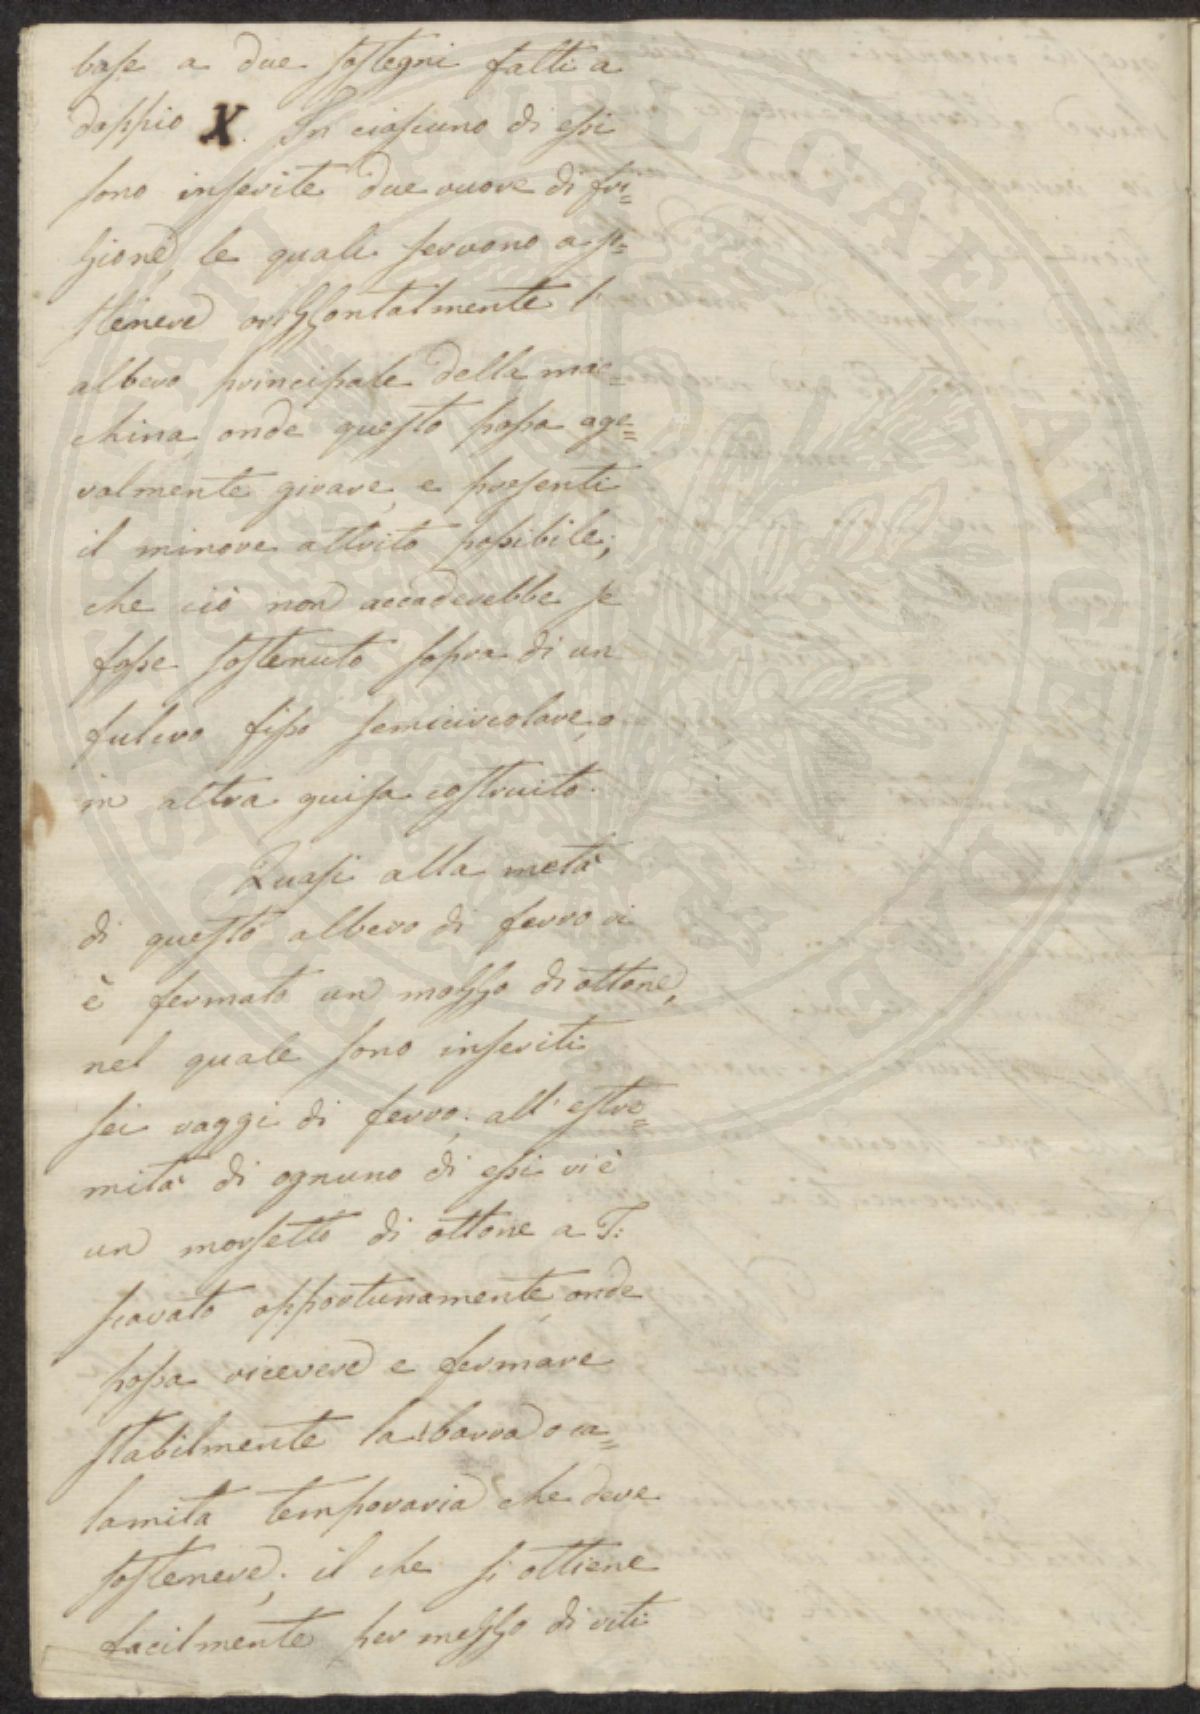 base a due sostegni fatti a
doppio X. In ciascuno di essi
sono inserite due ruore di fri=
zione, le quali servono a so=
stenere orizzontalmente l'
albero principale della mac=
china, onde questo possa age=
volmente girare, e presenti
il minore attrito possibile;
che ciò non accaderebbe se
fosse sostenuto sopra di un
fulcro fisso semicircolare, o
in altra guisa costruito.
Quasi alla metà
di questo albero di ferro vi
è fermato un mozzo di ottone,
nel quale sono inseriti
sei raggi di ferro; all'estre=
mità di ognuno di essi vi è
un morsetto di ottone a T:
scavato opportunamente, onde
possa ricevere e fermare
stabilmente la barra o ca=
lamita temporaria che deve
sostenere; il che si ottiene
facilmente per mezzo di viti
SENATI PVBLICAE LVCENSIS